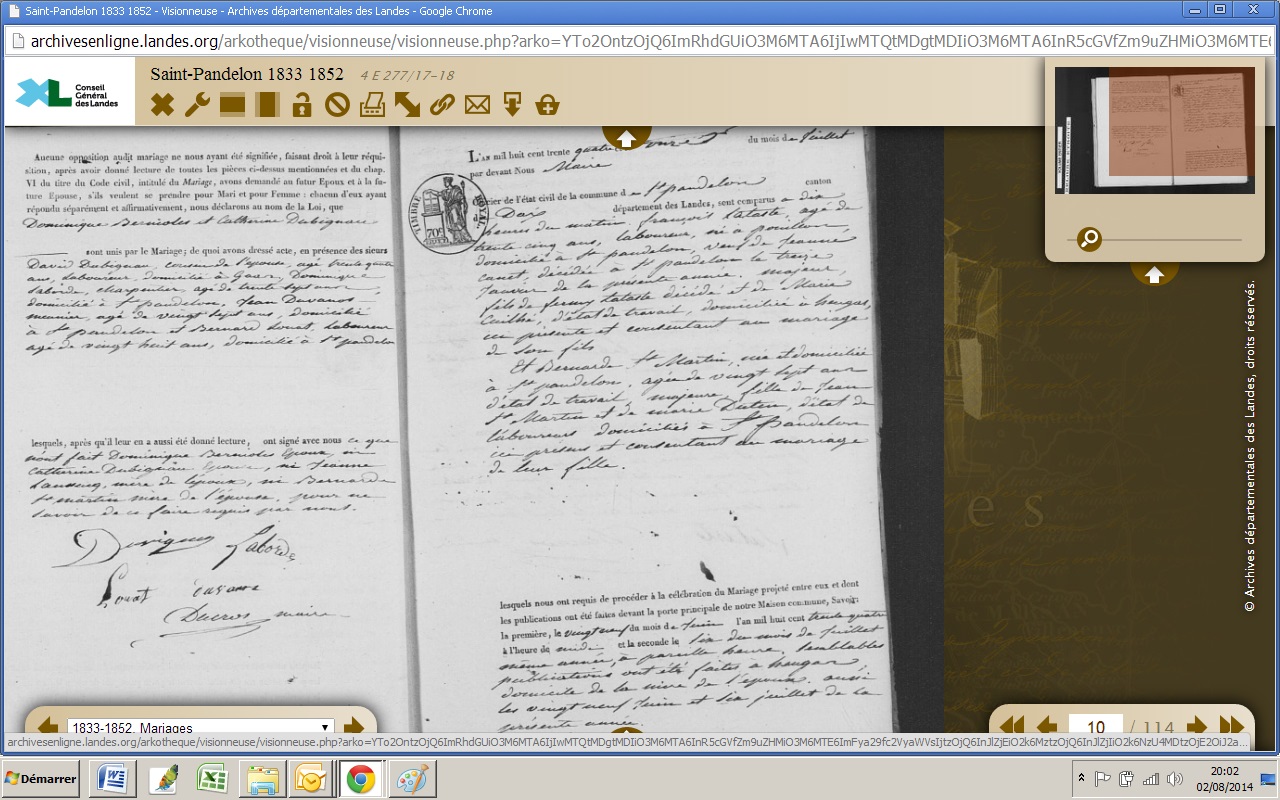 Saint-Pandelon 1833 1852 - Visionneuse - Archives départementales des Landes - Google Chrome
archivesenligne.landes.org/arkotheque/visionneuse/visionneuse.php?arko=YTo2OntzOjQ6ImRhdGUiO3M6MTA6IjIwMTQtMDgtMDIiO3M6MTA6InR5cGVfZm9uZHMiO3M6MTE6
XL Conseil Général des Landes
Saint-Pandelon 1833 1852 4 E 277/17-18
Aucune opposition audit mariage ne nous ayant été signifiée, faisant droit à leur réqui-
sition, après avoir donné lecture de toutes les pièces ci-dessus mentionnées et du chap.
VI du titre du Code civil, intitulé du Mariage, avons demandé au futur Epoux et à la fu-
ture Epouse, s'ils veulent se prendre pour Mari et pour Femme : chacun d'eux ayant
répondu séparément et affirmativement, nous déclarons au nom de la Loi, que
Dominique Bernioles et Catherine Dubignau
sont unis par le Mariage; de quoi avons dressé acte, en présence des sieurs
David Dubignau, cousin de l'épouse, agé trente quatre
ans, laboureur, domicilié à Gaas, Dominique
laborde, charpentier, agé de trente sept ans,
domicilié à St pandelon, Jean
meunier, agé de vingt sept ans, domicilié
à St pandelon et Bernard Louat, laboureur
agé de vingt huit ans, domicilié à St pandelon
lesquels, après qu'il leur en a aussi été donné lecture, ont signé avec nous ce que
n'ont fait Dominique Bernioles Epoux, ni
Catherine Dubignau Epouse, ni Jeanne
mère de l'époux, ni Bernarde
St martin mère de l'épouse, pour ne
savoir de ce faire requis par nous.
Laborde
Louat
Ducros maire
L'an mil huit cent trente quatre du mois de Juillet
par devant Nous Maire
TIMBRE ROYAL
70c
officier de l'état civil de la commune de St pandelon canton
d Dax département des Landes, sont comparus a dix
heures du matin, françois Lataste, agé de
trente cinq ans, laboureur, né à pouillon,
domicilié à St pandelon, veuf de Jeanne
Canet, décédée à St pandelon le treize
Janvier de la présente année. majeur,
fils de Lataste décédé et de Marie
d'état de travail, domiciliée à heugas,
ici présente et consentant au mariage
de son fils
Et Bernarde St Martin, née et domiciliée
à St pandelon, agée de vingt sept ans
d'état de travail, majeure, fille de Jean
St Martin et de marie d'état de
laboureurs domiciliés à St Pandelon
ici présens et consentant au mariage
de leur fille.
lesquels nous ont requis de procéder à la célébration du Mariage projeté entre eux et dont
les publications ont été faites devant la porte principale de notre Maison commune, Savoir:
la première, le vingt neuf du mois de Juin l'an mil huit cent trente quatre
à l'heure de midi et la seconde le six du mois de juillet
même année, à pareille heure. Semblables
publications ont été faites à heugas,
domicile de la mère de l'époux. aussi
les vingt neuf Juin et six juillet de la
présente année.
© Archives départementales des Landes, droits réservés.
es
1833-1852, Mariages
10 / 114
archivesenligne.landes.org/arkotheque/visionneuse/visionneuse.php?arko=YTo2OntzOjQ6ImRhdGUiO3M6MTA6IjIwMTQtMDgtMDIiO3M6MTA6InR5cGVfZm9uZHMiO3M6MTE6ImFya29fc2VyaWVsIjtzOjQ6InJlZjEiO2k6MztzOjQ6InJlZjIiO2k6NzU4MDtzOjE2OiJ2a...
Démarrer
20:02
02/08/2014